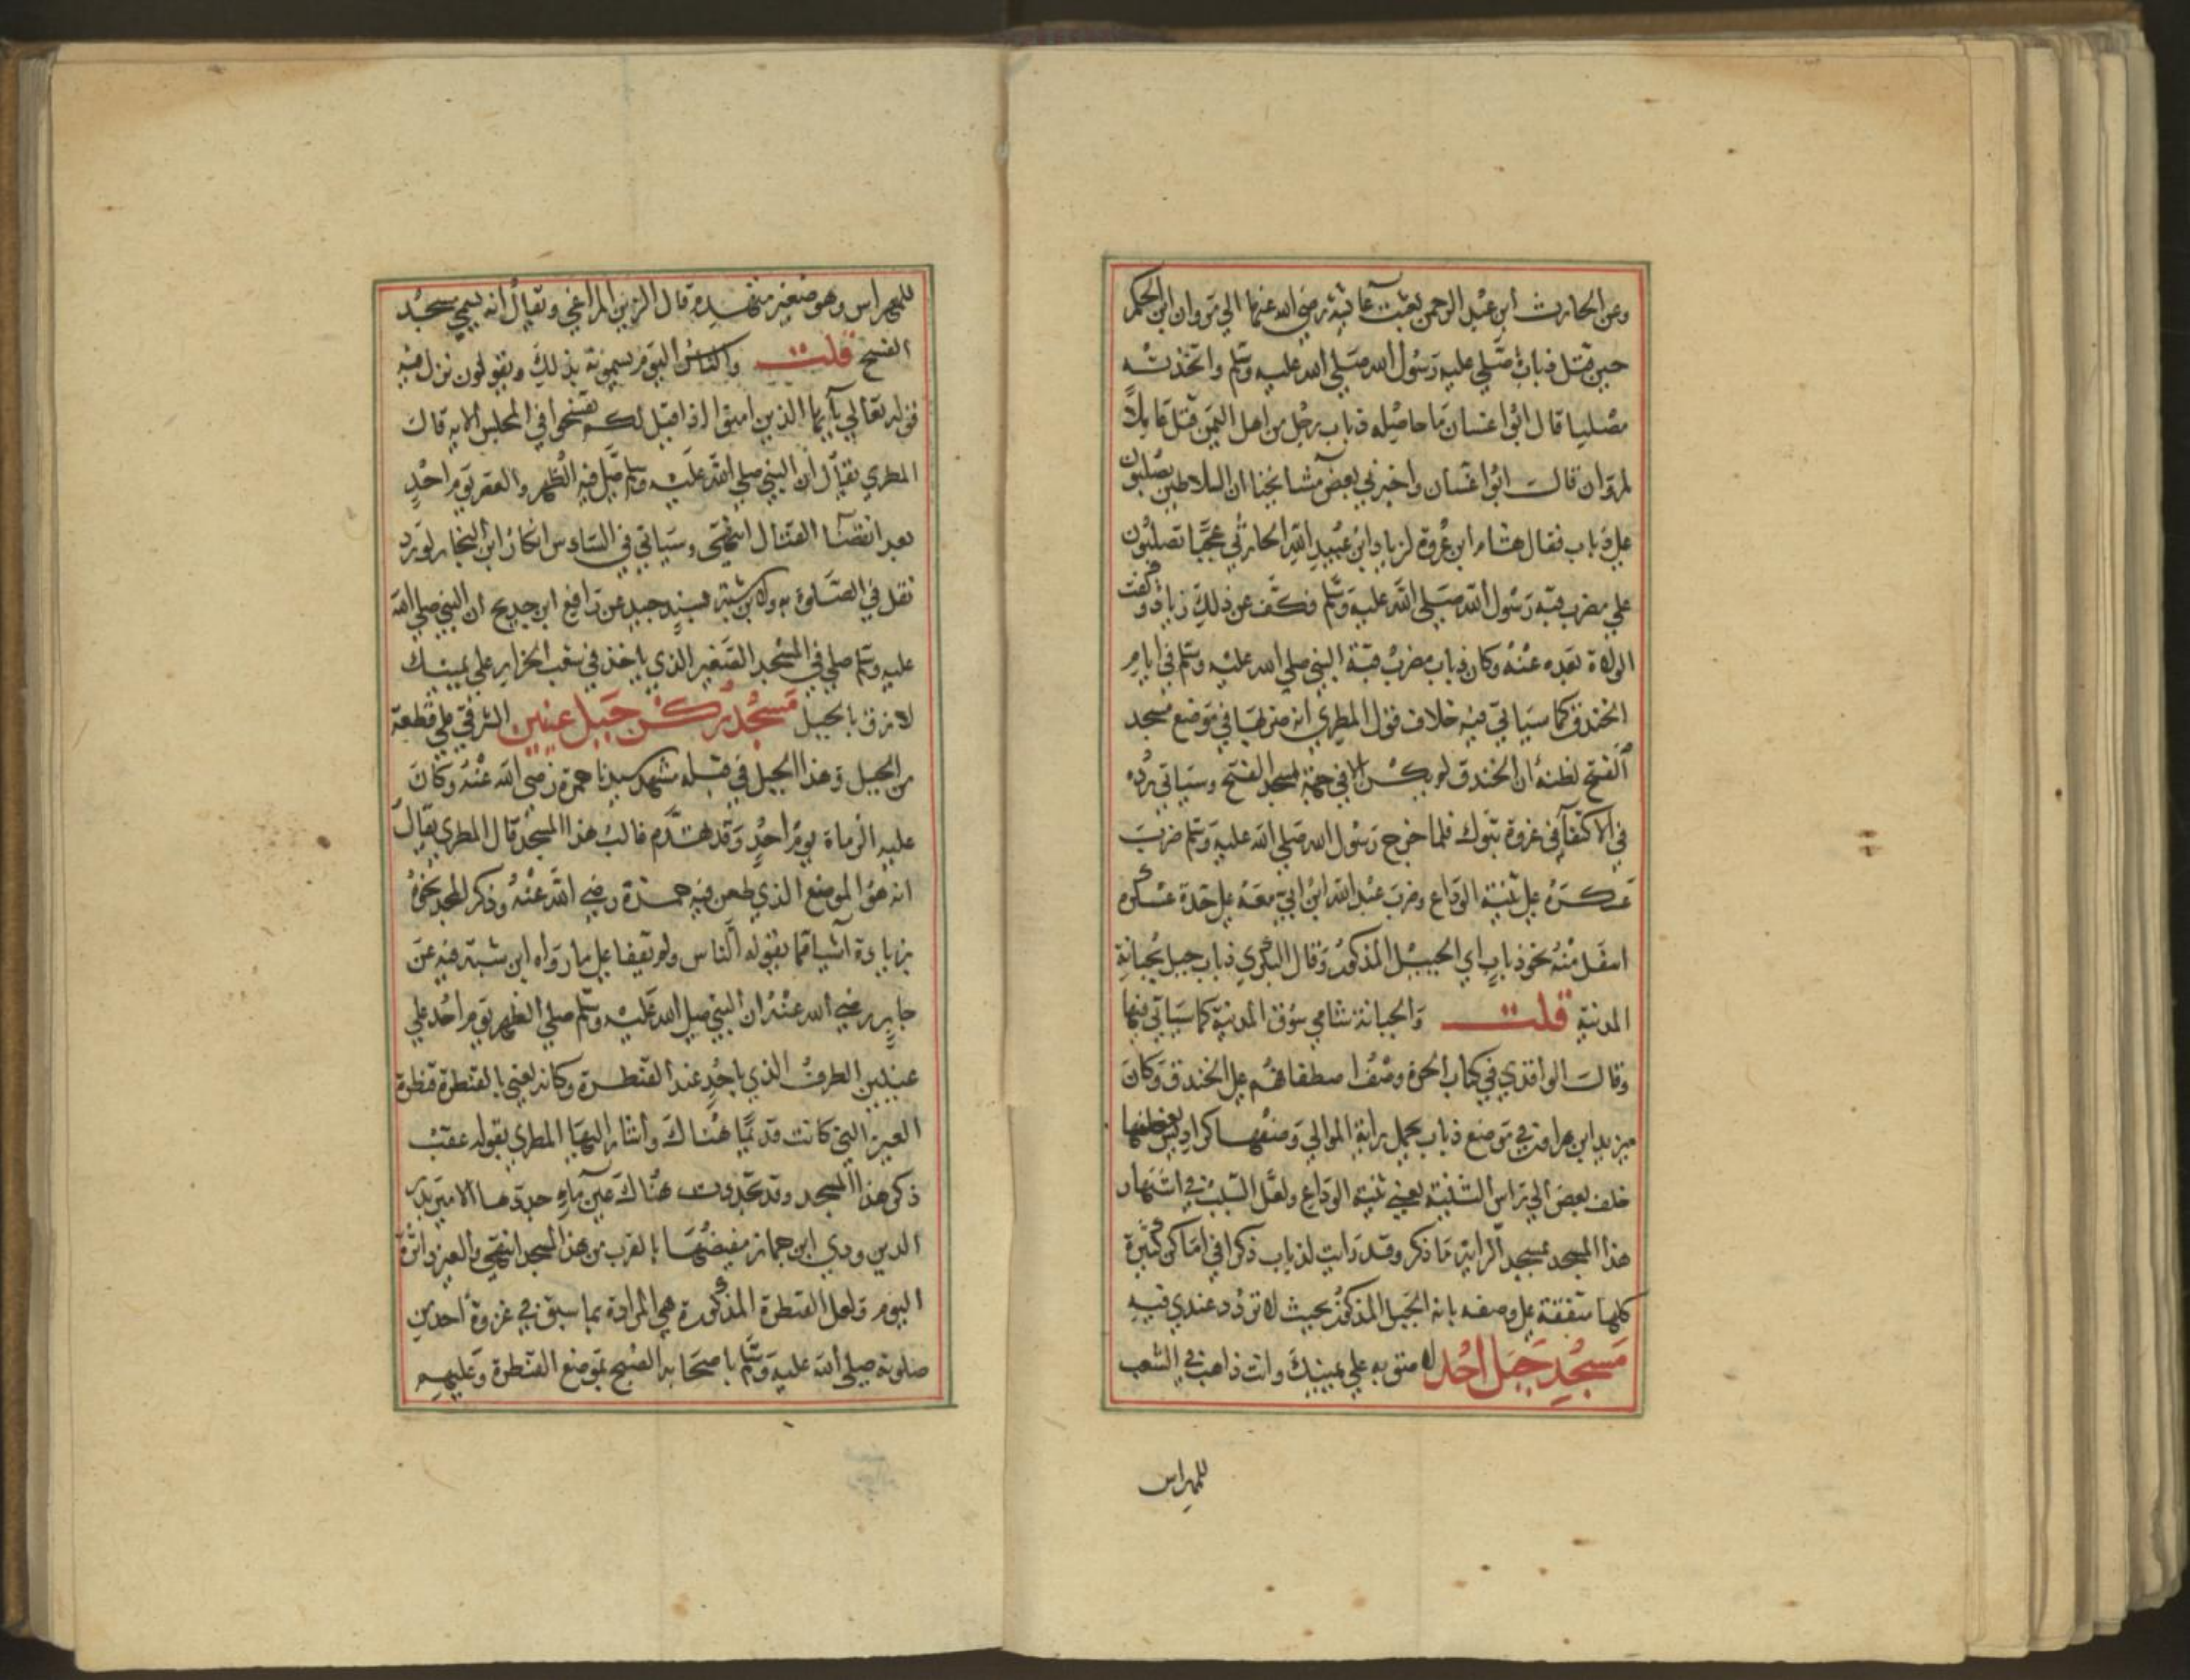 وعن الحارث ابن عبد الرحمن بعثت عائشة رضي الله عنها الي مروان ابن الحكم
حين قتل ذباب صلي عليه رسول الله صلي الله عليه وسلم واتخذته
مصلبا قال ابوا غسان ما حاصله ذباب رجل من اهل اليمن قتل عاملاً
لمروان قالت ابوا غسان واخبرني بعض مشائخنا ان السلاطين يصلبون
علي ذباب فقال هشام ابن عروة لزياد ابن عبيد الله الحارثي عجبا تصلبون
علي مضرب قبة رسول الله صلي الله عليه وسلم فكف عن ذلك زياد وكفت
الولاة بعده عنه وكان ذباب مضرب قبة النبي صلي الله عليه وسلم في ايام
الخندق كما سياتي فيه خلاف قول المطري انه ضربها في موضع مسجد
الفتح لظنه ان الخندق لم يكن الا في جهة مسجد الفتح وسياتي رده
في الاكتفآ في غزوة تبوك فلما خرج رسول الله صلي الله عليه وسلم ضرب
عسكره علي ثنية الوداع وضرب عبد الله ابن ابي معه علي حدة عسكره
اسفل منه نحو ذباب اي الجبيل المذكور وقال البكري ذباب جبل بجبانة
المدينة قلت والجبانة شامي سوق المدينة كما سياتي فيها
وقالت الواقدي في كتاب الحرة وصفوا اصطفافهم علي الخندق وكان
يزيد ابن هرمز في موضع ذباب يحمل راية الموالي وصفها كراديس بعضها
خلف بعض الي راس الثنية يعني ثنية الوداع ولعل السبب في اشتهار
هذا المسجد بمسجد الراية ما ذكر وقد رايت لذباب ذكرا في اماكن كثيرة
كلها متفقة علي وصفه بانه الجبل المذكور بحيث لا تردد عندي فيه
مسجد جبل احد لاصق به علي يمينك وانت ذاهب في الشعب
للمهراس
للمهراس وهو صغير منهدم قال الزين المراغي ويقال انه يسمي مسجد
الفسح قلت والناس اليوم يسمونه بذلك ويقولون نزل فيه
قوله تعالي يآ ايها الذين امنوا اذا قيل لكم تفسحوا في المجلس الاية قال
المطري يقال ان النبي صلي الله عليه وسلم صلي فيه الظهر والعصر يوم احدٍ
بعد انقضآ القتال انتهي وسياتي في السادس انكار ابن النجار لورود
نقل في الصلوة به ولابن شبة بسند جيد عن رافع ابن خديج ان النبي صلي الله
عليه وسلم صلي في المسجد الصغير الذي باحد في شعب الجزار علي يمينك
لازق بالجبل مسجد ركن جبل عينين الشرقي علي قطعة
من الجبل وهذا الجبل في قبله مشهد سيدنا حمزة رضي الله عنه وكان
عليه الرماة يوم احدٍ وقد تهدم غالب هذا المسجد قال المطري يقال
انه هو الموضع الذي طعن فيه حمزة رضي الله عنه وذكر المجد نحوه
بزيادة اشيا مما يقوله الناس ولم يقفا علي ما رواه ابن شبة فيه عن
جابر رضي الله عنه ان النبي صلي الله عليه وسلم صلي الظهر يوم احد علي
عينين الطرف الذي باحد عند القنطرة وكانه يعني بالقنطرة قنطرة
العين التي كانت قديمًا هناك واشار اليها المطري بقوله عقب
ذكر هذا المسجد وقد تجددت هناك عين مآء جددها الامير بدر
الدين ودي ابن جماز مفيضتها بالقرب من هذا المسجد انتهي والعين داثرة
اليوم ولعل القنطرة المذكورة هي المرادة بما سبق في غزوة احد من
صلوته صلي الله عليه وسلم باصحابه الصبح بموضع القنطرة وعليهم